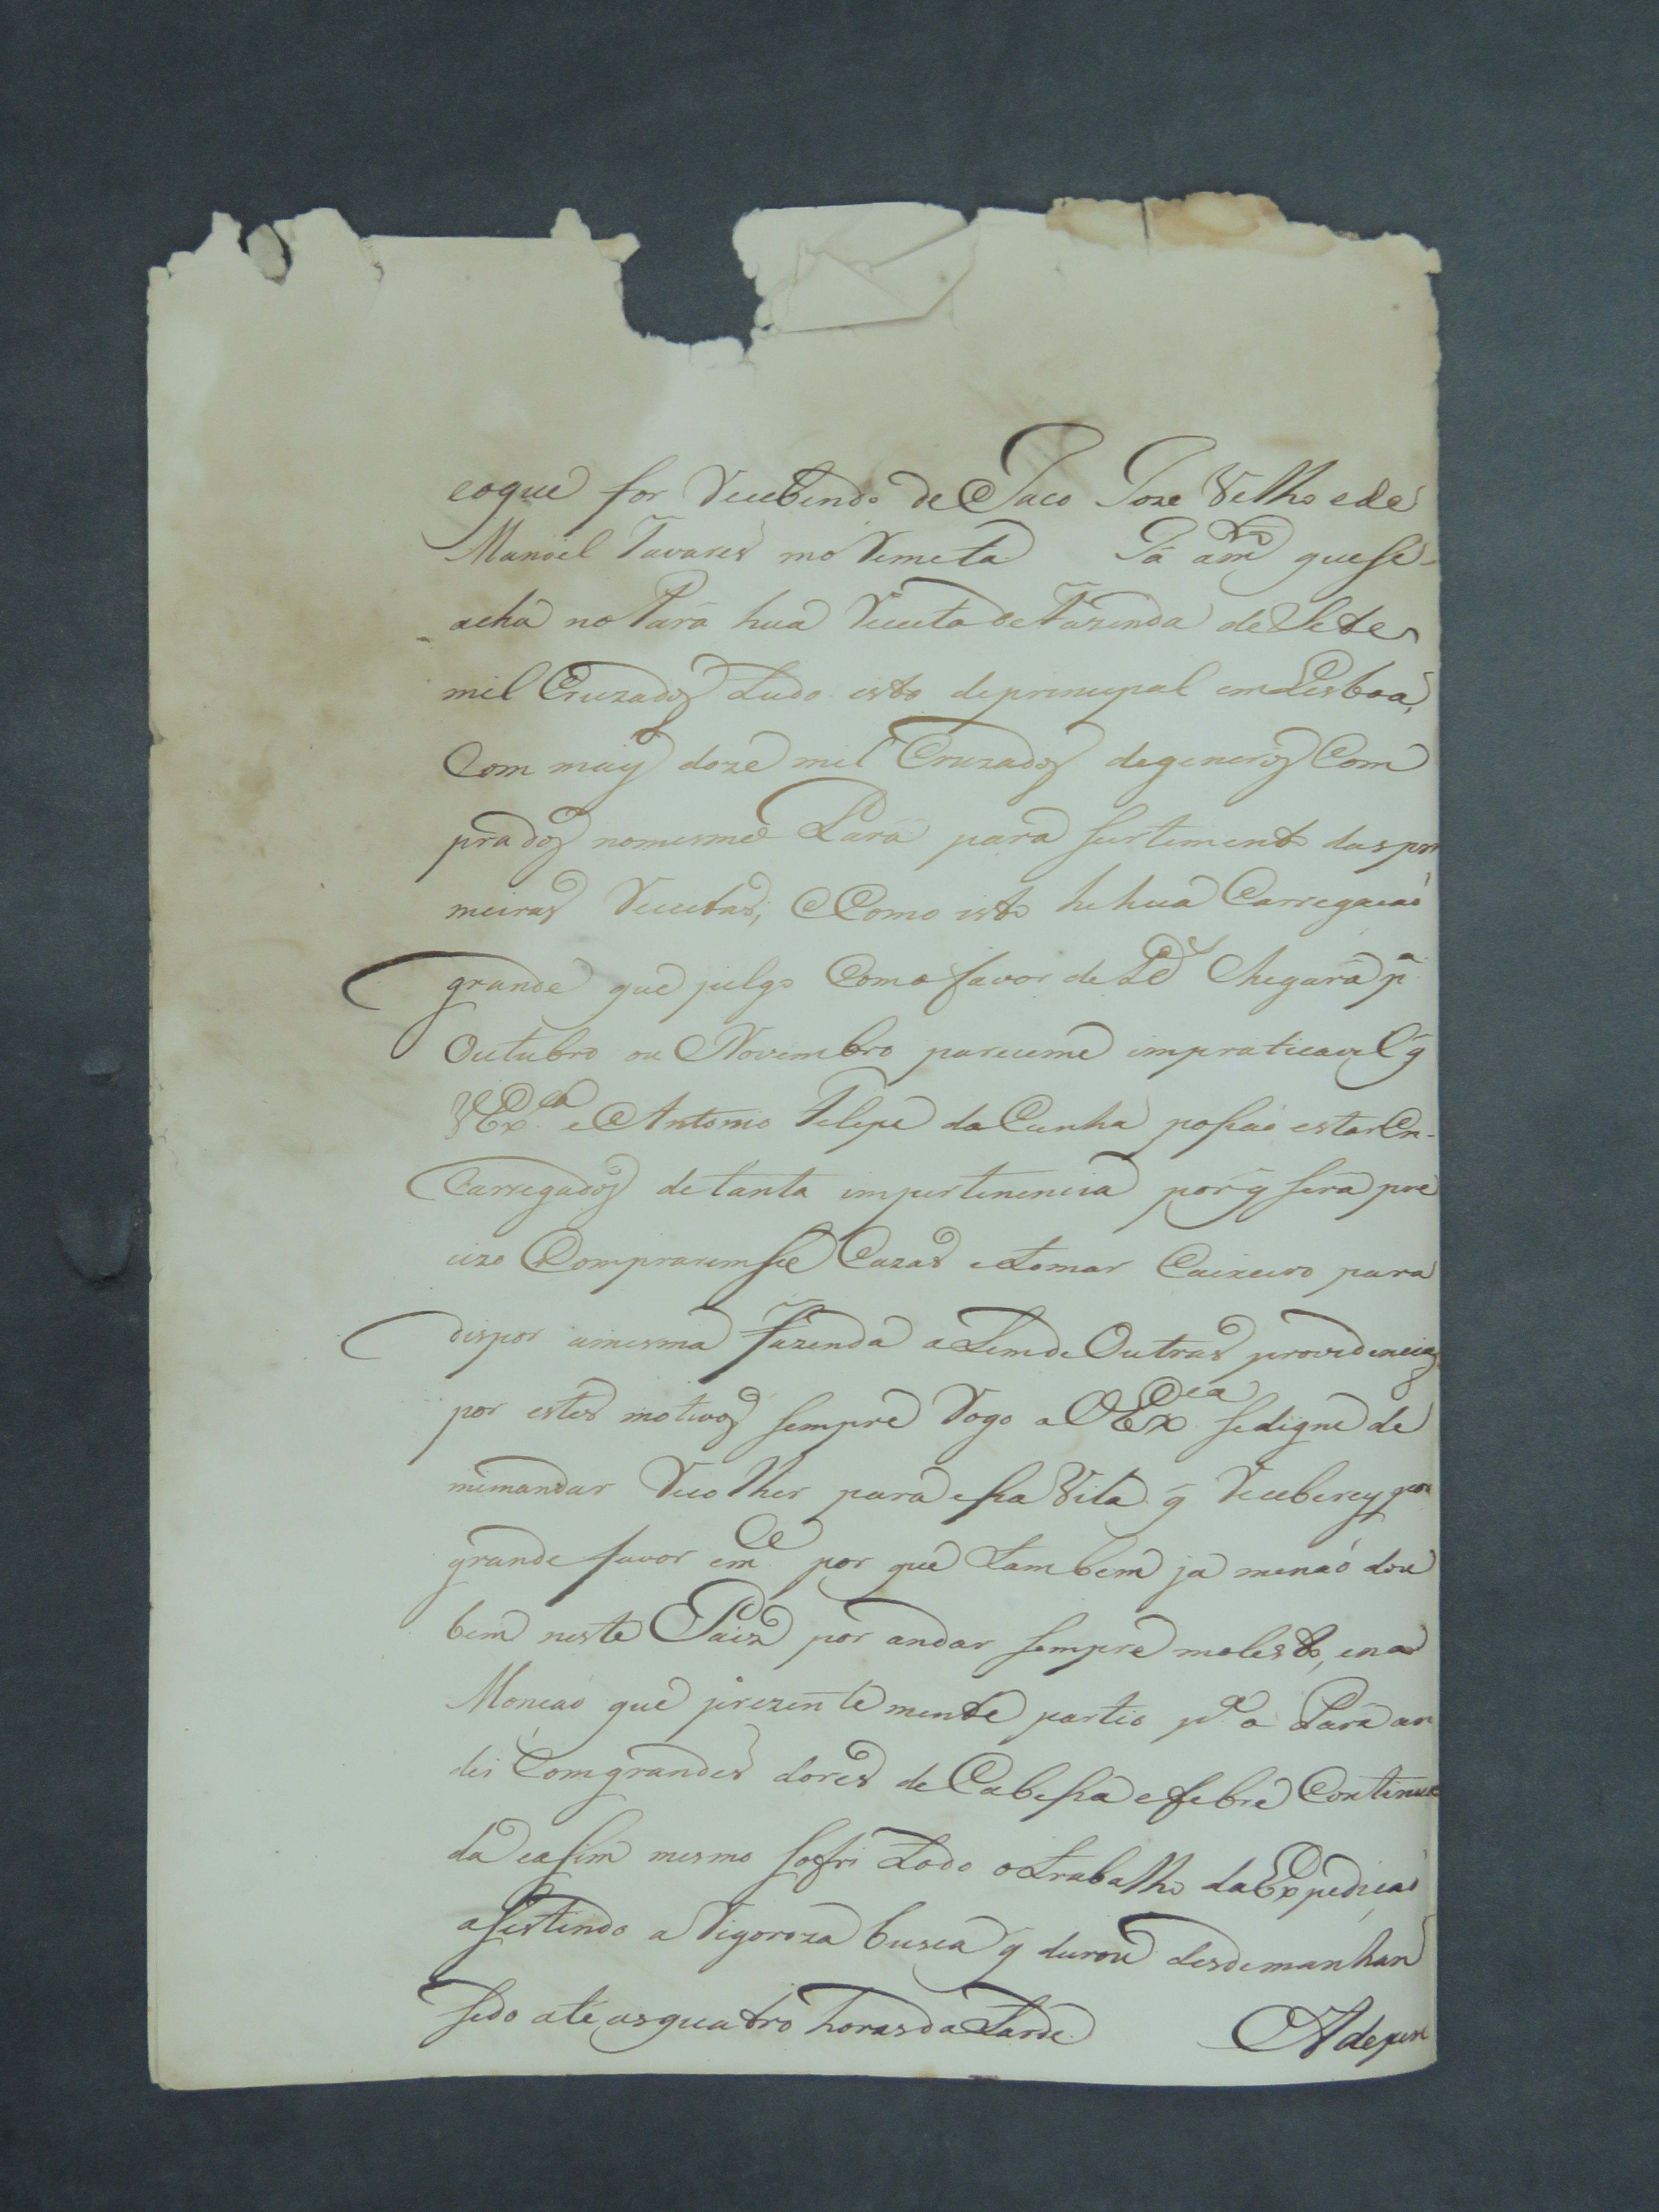 eoque for Recebendo de Jaco Joze Velho ede
Manoel Tavares mo Remeta Já am quese
acha no Pará hua Receita de Fazenda de Sete
mil Cruzados tudo isto deprincipal em Lisboa,
Com mais doze mil Cruzados degeneros Com
prados nomesmo Pará para surtimento daspri
meiras Receitas; eComo isto hehua Carregacaó
grande que julgo Como favor de Ds Chegará pa
Outubro ou Novembro pareceme impraticavel q̃
VExca e Antonio Felipe da Cunha posaó estar En-
Carregados detanta impertinencia porq̃ será pre
cizo Compraremse Cazas etomar Caixeiro para
dispor amesma fazenda alemde Outras providencias
por estes motivos sempre Rogo a VExca sedigne de
memandar Recolher para essa Vila q̃ Receberey por
grande favor emce por que tambem ja menaó dou
bem neste Paiz por andar sempre molesto, ena
Moncaó que prezentemente partio pa o Pará an
dei Comgrandes dores de Cabessa efebre Continua
da easim mesmo sofri todo otrabalho da Expedicaó
asistindo a Rigoroza busca q̃ durou desdemanhan
sedo até asquatro horasda tarde. Adepen